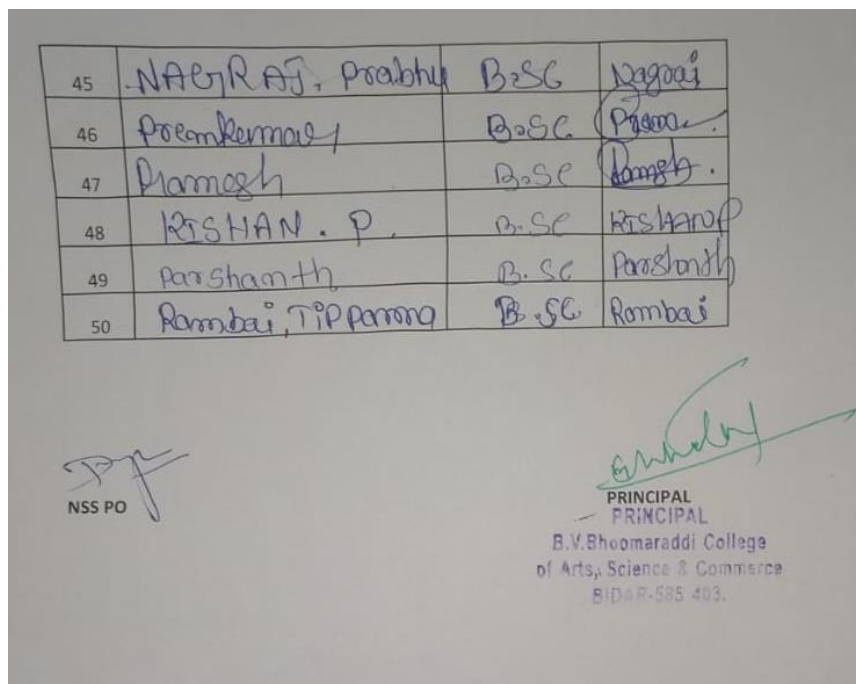 45 NAGRAJ. Prabhu B.SC Nagraj
46 Premkumar B.SC. Prem
47 Pramesh B.SC Ramesh.
48 KISHAN. P. B.SC KISHANP
49 Parshanth B.SC Parshanth
50 Rambai, Tippanna B.SC. Rambai
NSS PO
PRINCIPAL
PRINCIPAL
B.V.Bhoomaraddi College
of Arts, Science & Commerce
BIDAR-585 403.